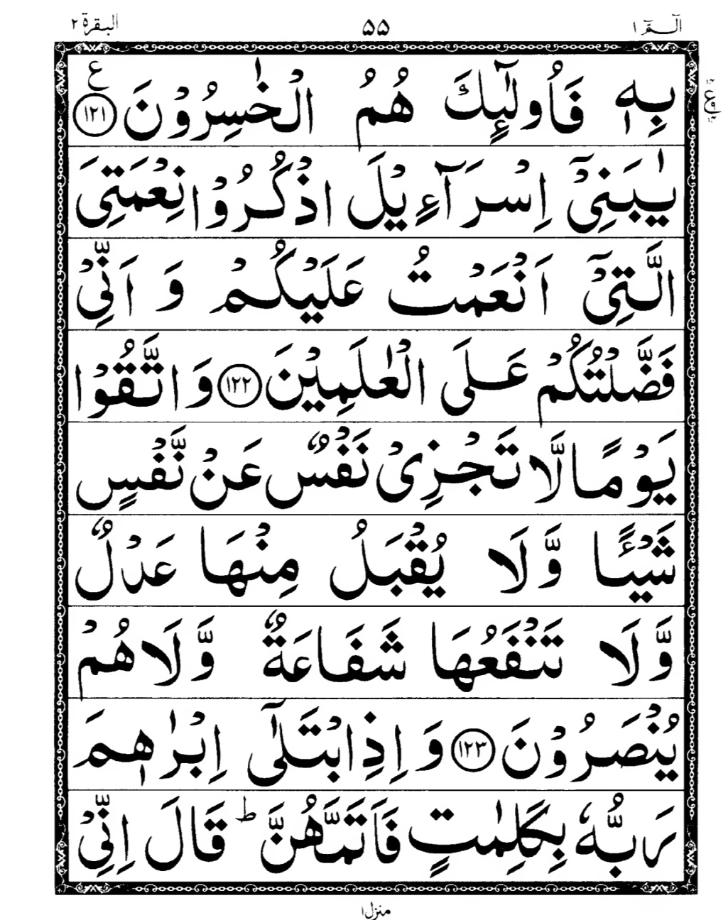 الٓمّٓ ١ ۵۵ البقرة ٢
بِهٖ فَاُولٰٓئِكَ هُمُ الْخٰسِرُوْنَ ﴿١٢١﴾ ع
يٰبَنِیْۤ اِسْرَآءِيْلَ اذْكُرُوْا نِعْمَتِیَ
الَّتِیْۤ اَنْعَمْتُ عَلَيْكُمْ وَ اَنِّیْ
فَضَّلْتُكُمْ عَلَی الْعٰلَمِيْنَ ﴿١٢٢﴾ وَ اتَّقُوْا
يَوْمًا لَّا تَجْزِیْ نَفْسٌ عَنْ نَّفْسٍ
شَيْـًٔا وَّلَا يُقْبَلُ مِنْهَا عَدْلٌ
وَّلَا تَنْفَعُهَا شَفَاعَةٌ وَّلَا هُمْ
يُنْصَرُوْنَ ﴿١٢٣﴾ وَ اِذِ ابْتَلٰۤی اِبْرٰهٖمَ
رَبُّهٗ بِكَلِمٰتٍ فَاَتَمَّهُنَّ ؕ قَالَ اِنِّیْ
منزل ١